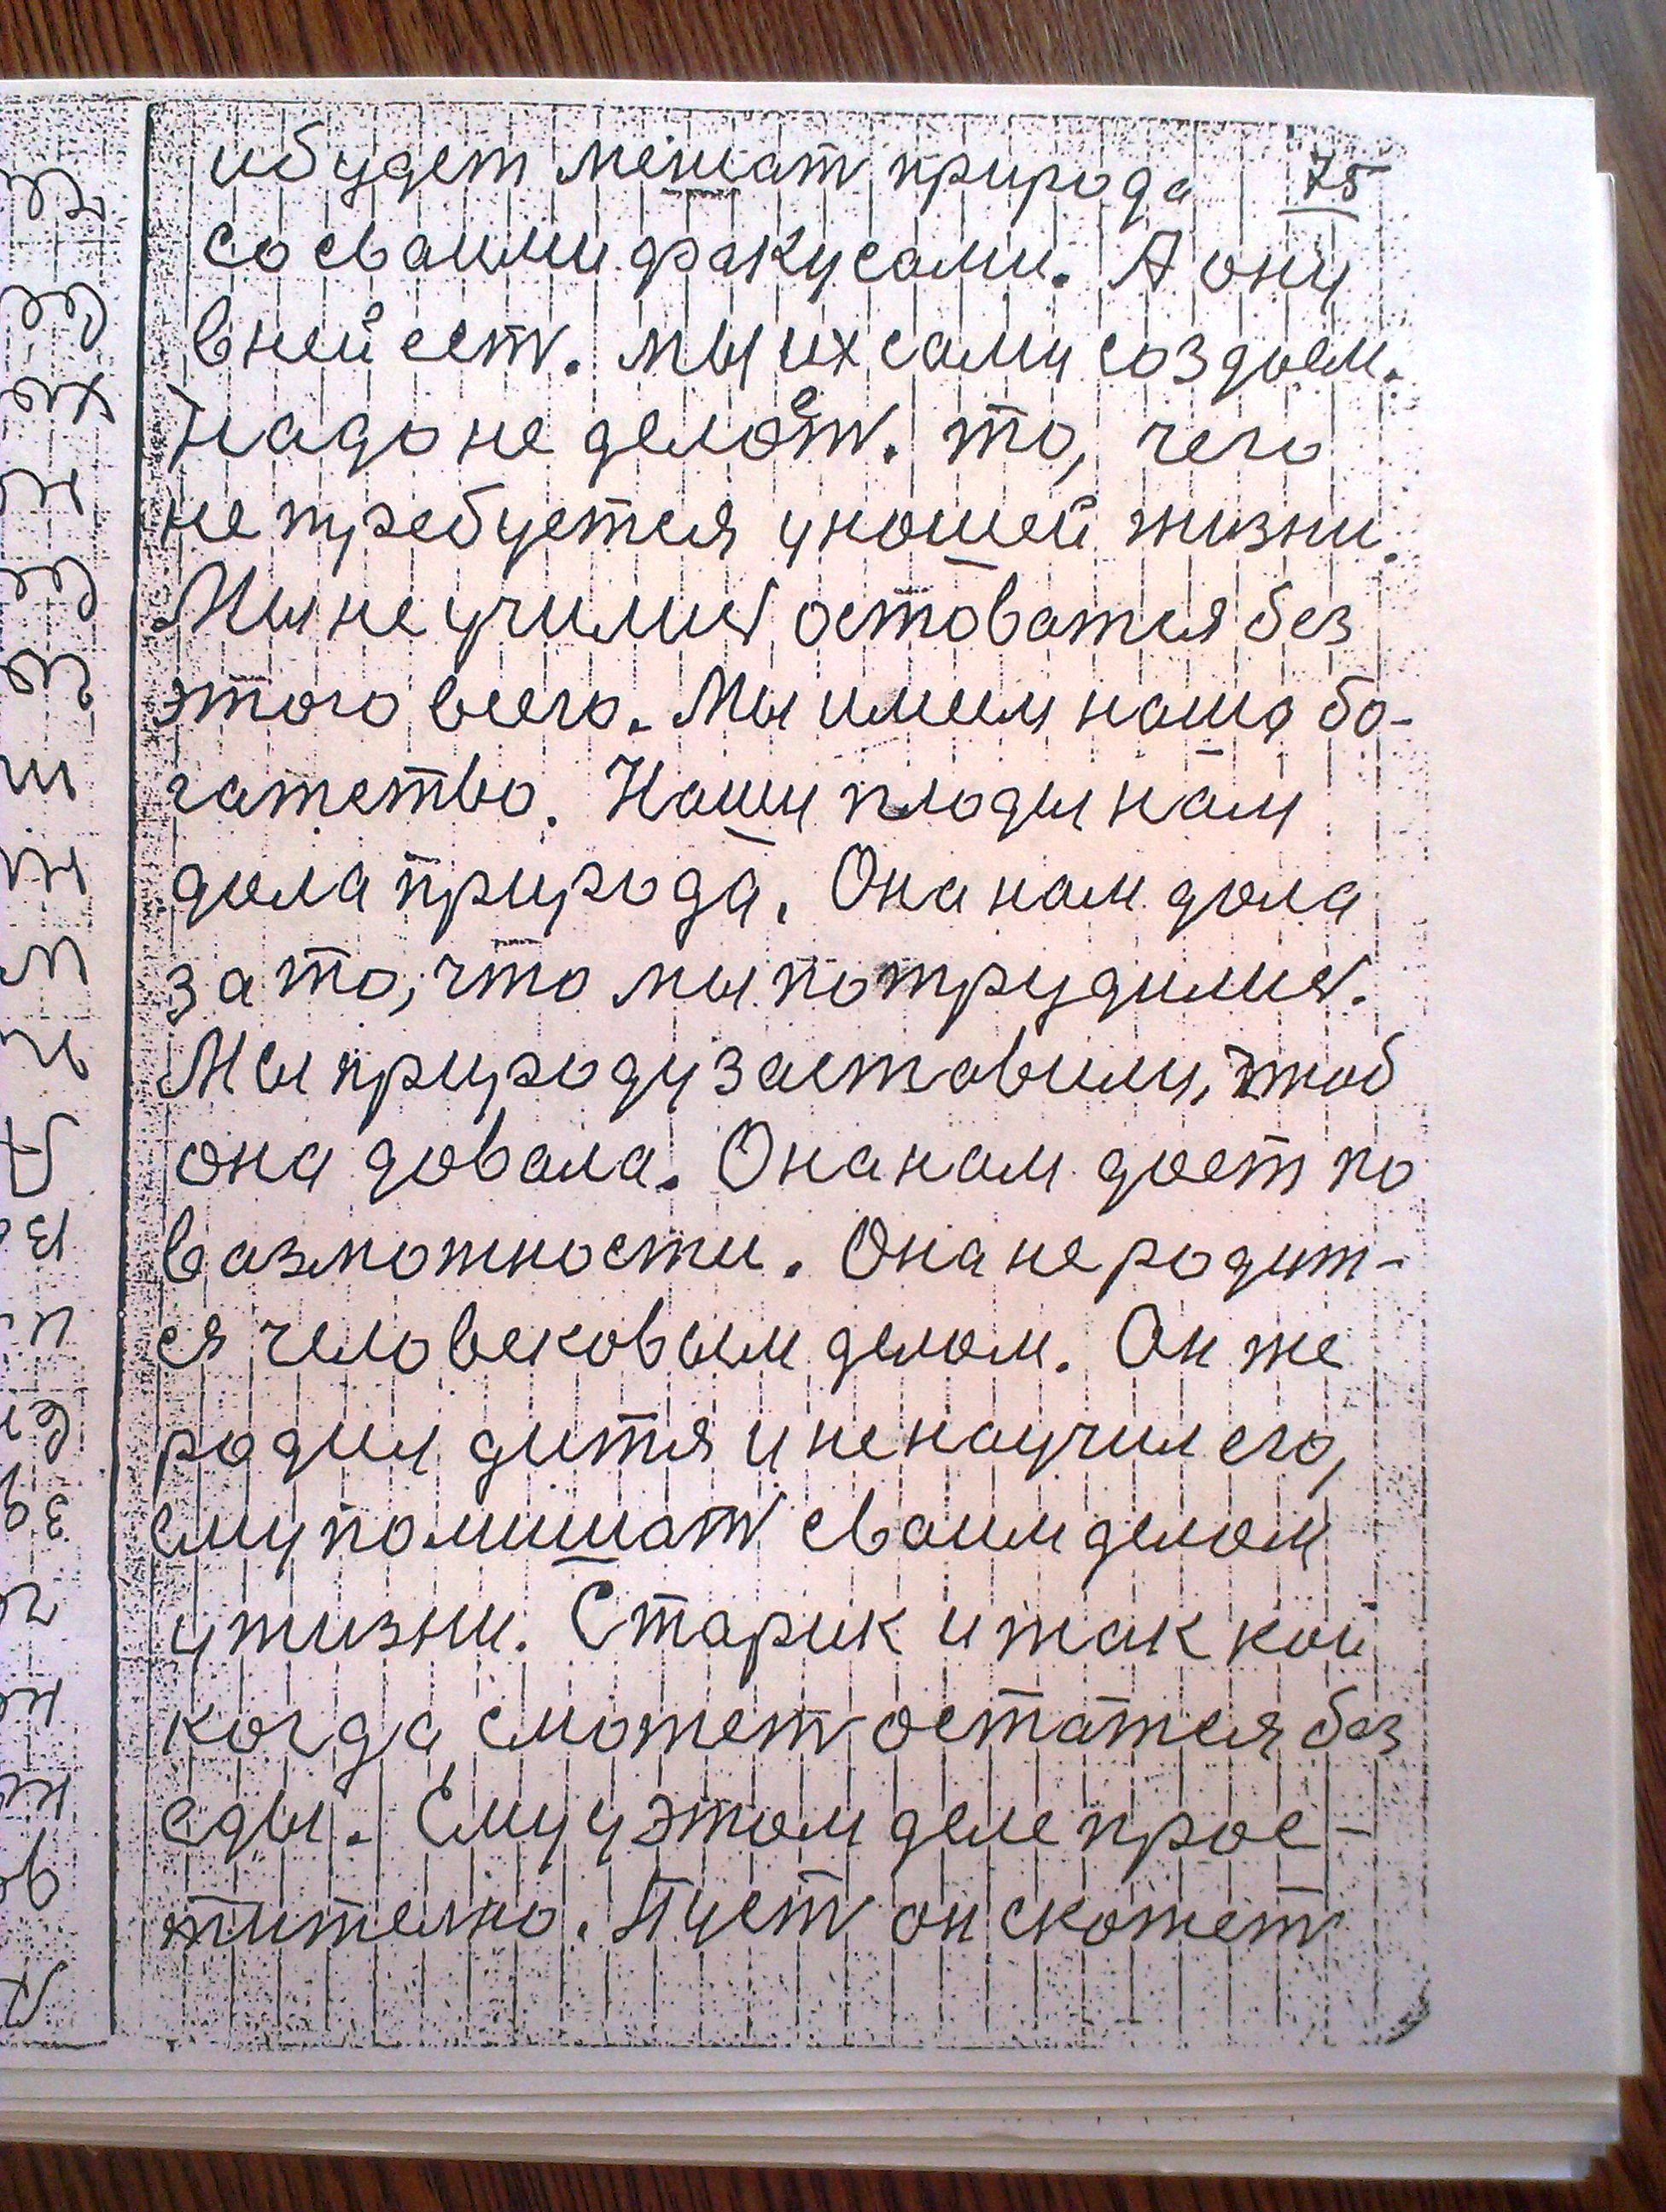 и будет мешат природа 75
со сваими факусами. А они
в ней ест. мы их сами создаем.
Надо не делает. то, чего
не требуется у нашей жизни.
Мы не училис остоватся без
этого всего. Мы имеем наше бо-
гатство. Наши плоды нам
дала природа. Она нам дала
за то, что мы потрудилис.
Мы природу заставили, чтоб
она довала. Она нам дает по
вазможности. Она не родит-
ся человековым делом. Он же
родил дитя и не научил его,
ему помишат сваим делом
у жизни. Старик и так кой
когда сможет остатся без
еды. Ему у этом деле прос-
тително. Пуст он скажет